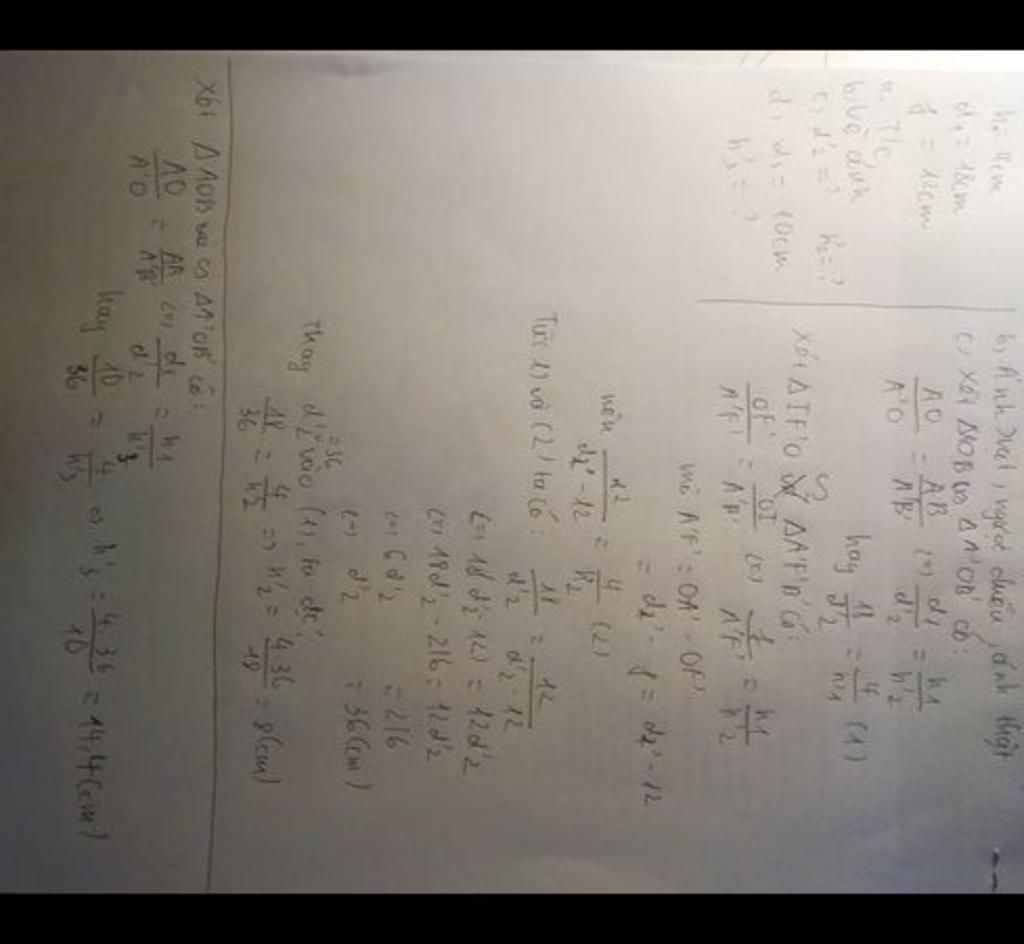 h1 = 4cm
d1 = 18cm
f = 12cm
a, T/c
b, Vẽ ảnh
c, d'2 = ? h'2 = ?
d, d3 = 10cm
h'3 = ?
b, Ảnh thật, ngược chiều, ảnh thật
c, Xét ΔAOB ∽ ΔA'OB' có:
AO/A'O = AB/A'B' (=) d1/d'2 = h1/h'2
hay 18/d'2 = 4/h1 (1)
Xét ΔIF'O ∽ ΔA'F'B' có:
OF'/A'F' = OI/A'B' (=) f/A'F' = h1/h'2
mà A'F' = OA' - OF'
= d2' - f = d2' - 12
nên d2'/d2' - 12 = 4/h2 (2)
Từ (1) và (2) ta có: 18/d'2 = 12/d'2 - 12
(=) 18(d'2 - 12) = 12d'2
(=) 18d'2 - 216 = 12d'2
(=) 6d'2 = 216
(=) d'2 = 36(cm)
Thay d'2 = 36 vào (1), ta đc:
18/36 = 4/h'2 => h'2 = 4.36/18 = 8(cm)
Xét ΔAOB và ∽ ΔA'OB' có:
AO/A'O = AB/A'B' (=) d1/d'2 = h1/h'3
hay 10/36 = 4/h'3 => h'3 = 4.36/10 = 14,4(cm)